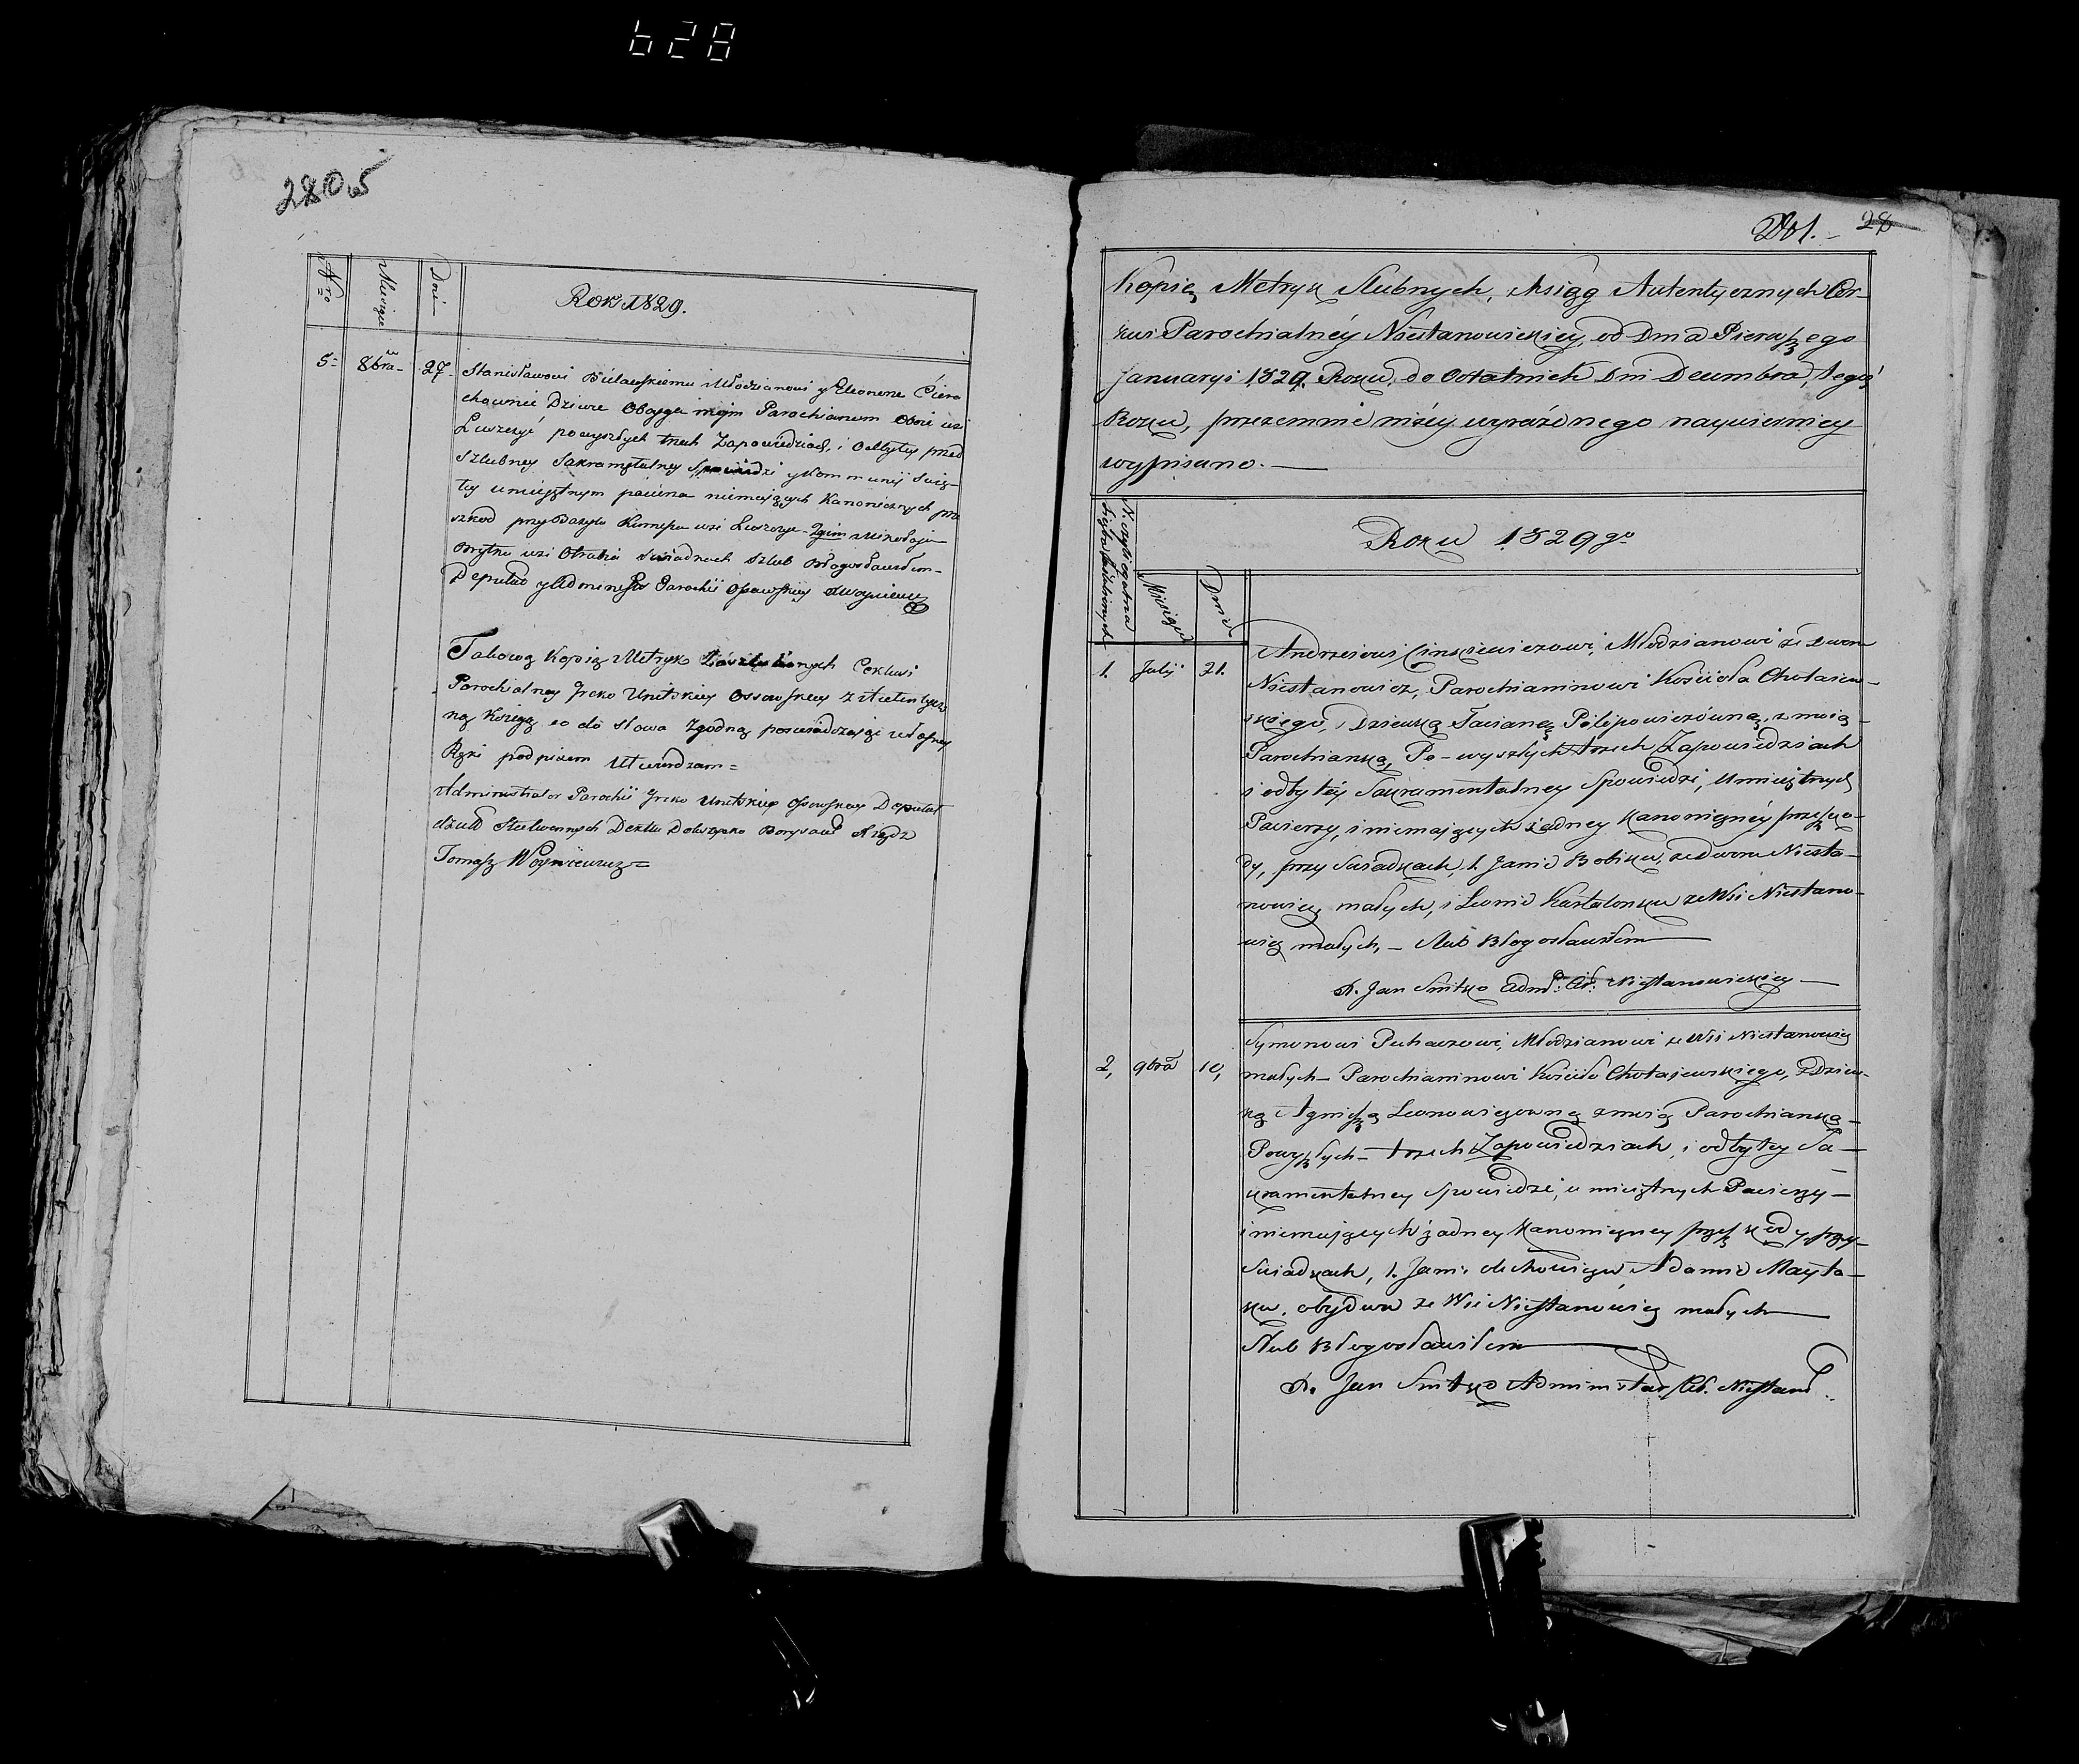 628
2805
Nro
Miesiąc
Dni
Rok 1829.
5-
8bra-
27-
Stanisławowi Bielawskiemu Młodzianowi y Eleonorze
chownie Dziwce Oboyga moim Parochianom
po wyszłych trzech Zapowiedziach, i odbytey przed
Szlubney Sakramętalney Spowiedzi y Kommunij Swię-
tey umiejętnym pacierza niemających Kanonicznych prze
szkod przy Bazylu wsi Mikołaju
wsi Swiadkach Szlub Błogosławiłem-
Deputat y Administr Parochii Ossowskiey
Takową Kopią Metryk Zaszlubionych Cerkwi
Parochialney Greko Unitskiey Ossowskiey z Autentycz
ną Księgą co do słowa Zgodną poswiadczając własney
Ręki podpisem Utwierdzam=
Administrator Parochii Greko Unitskiey Ossowskiey Deputat
Dektu Borysow Xiądz
Tomasz Woyniewicz=
201.- 28
Kopia Metryk Slubnych, z Ksiąg Autentycznych Cer-
kwi Parochialnéy Niestanowickiey, od Dnia Pierwszego
Januaryi 1829. Roku, do Ostatnich Dni Decembra, tegoż
Roku, przezemnie niżéy wyrażonego naywierniey
wypisana.-
Roku 1829go
Miesiąc
Dnia
1.
Julij
21.
Andrzeiowi Młodzianowi ze Dworu
Niestanowicz, Parochianinowi Kościoła Chołaiew-
skiego, i Dziewką Tacianą Pilipowiczówną, z moią
Parochianką, Po-wyszłych trzech Zapowiedziach
i odbytéy Sakramentalney Spowiedzi, Umieiętnych
Pacierzy, i niemaiących żadney Kanonicznéy przeszko-
dy, przy Swiadkach, 1. Janie Bobiku, ze dworu Niesta-
nowicz małych, i Leonie ze Wsi Niestano-
wicz małych,- Slub Błogosławiłem
X. Jan Snitko Adm: Niestanowickiey-
2,
9bra
10,
Symonowi Puhaczowi, Młodzianowi ze Wsi Niestanowicz
małych- Parochianinowi Kościoła Chołajewskiego, z Dziew-
ką Agnieszą Leonowiczowną z moią Parochianką-
Powyszłych- trzech Zapowiedziach, i odbytey Sa-
kramentalney Spowiedzi, umieiętnych Pacierzy-
i niemaiących żadney Kanoniczney przeszkody, przy-
Swiadkach, 1. Janie Adamie Mayta-
ku. obydwa ze Wsi Niestanowicz małych
Slub Błogosławiłem
X. Jan Snitko Administar